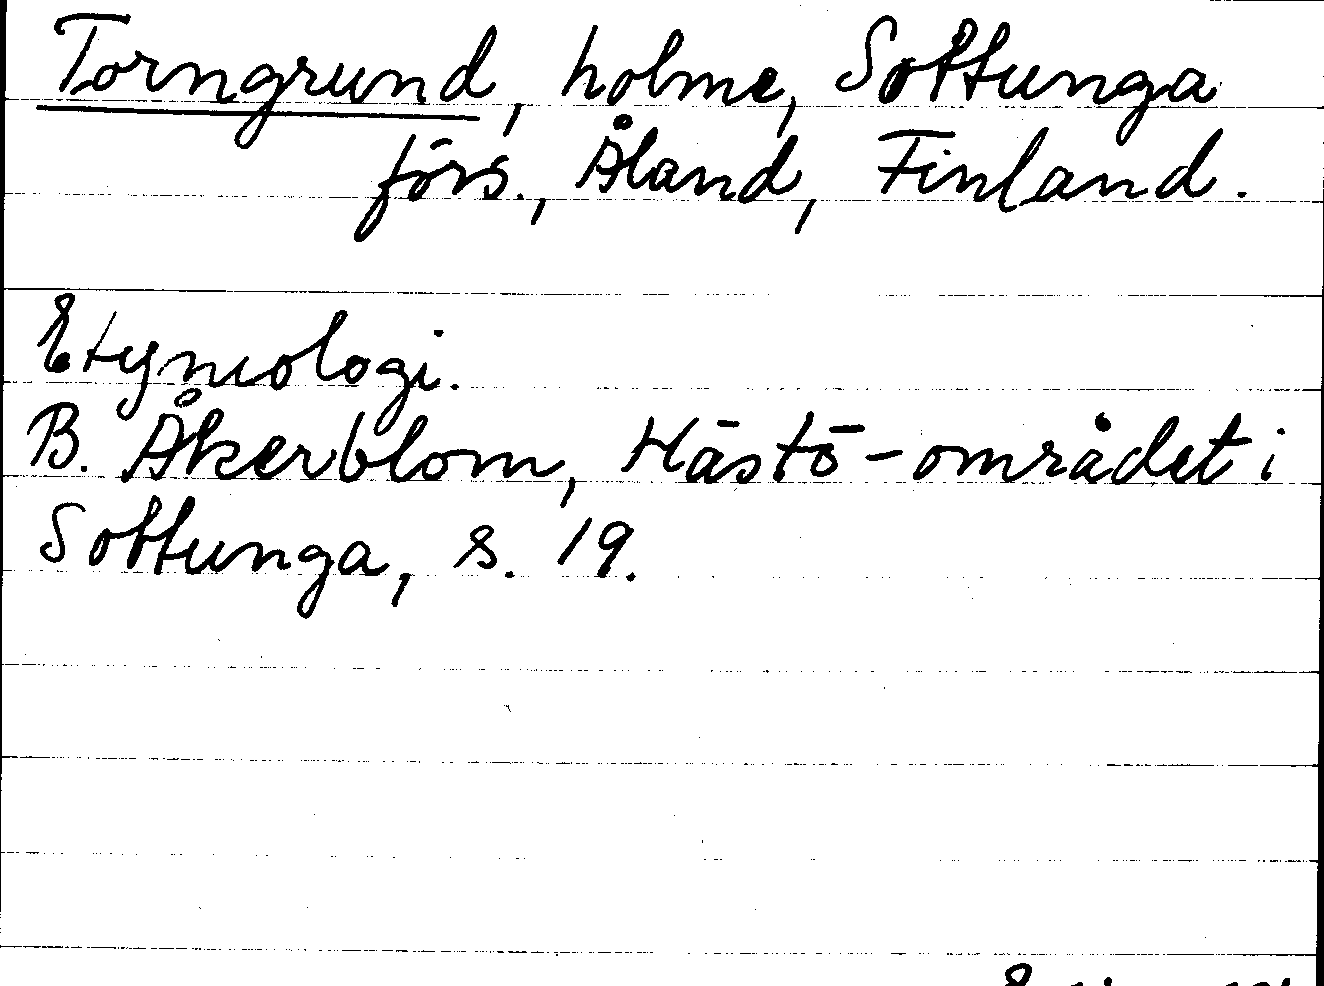 Torngrund, holme, Sottunga
förs., Åland, Finland.
Etymologi.
B. Åkerblom, Hästö-området i
Sottunga, s. 19.